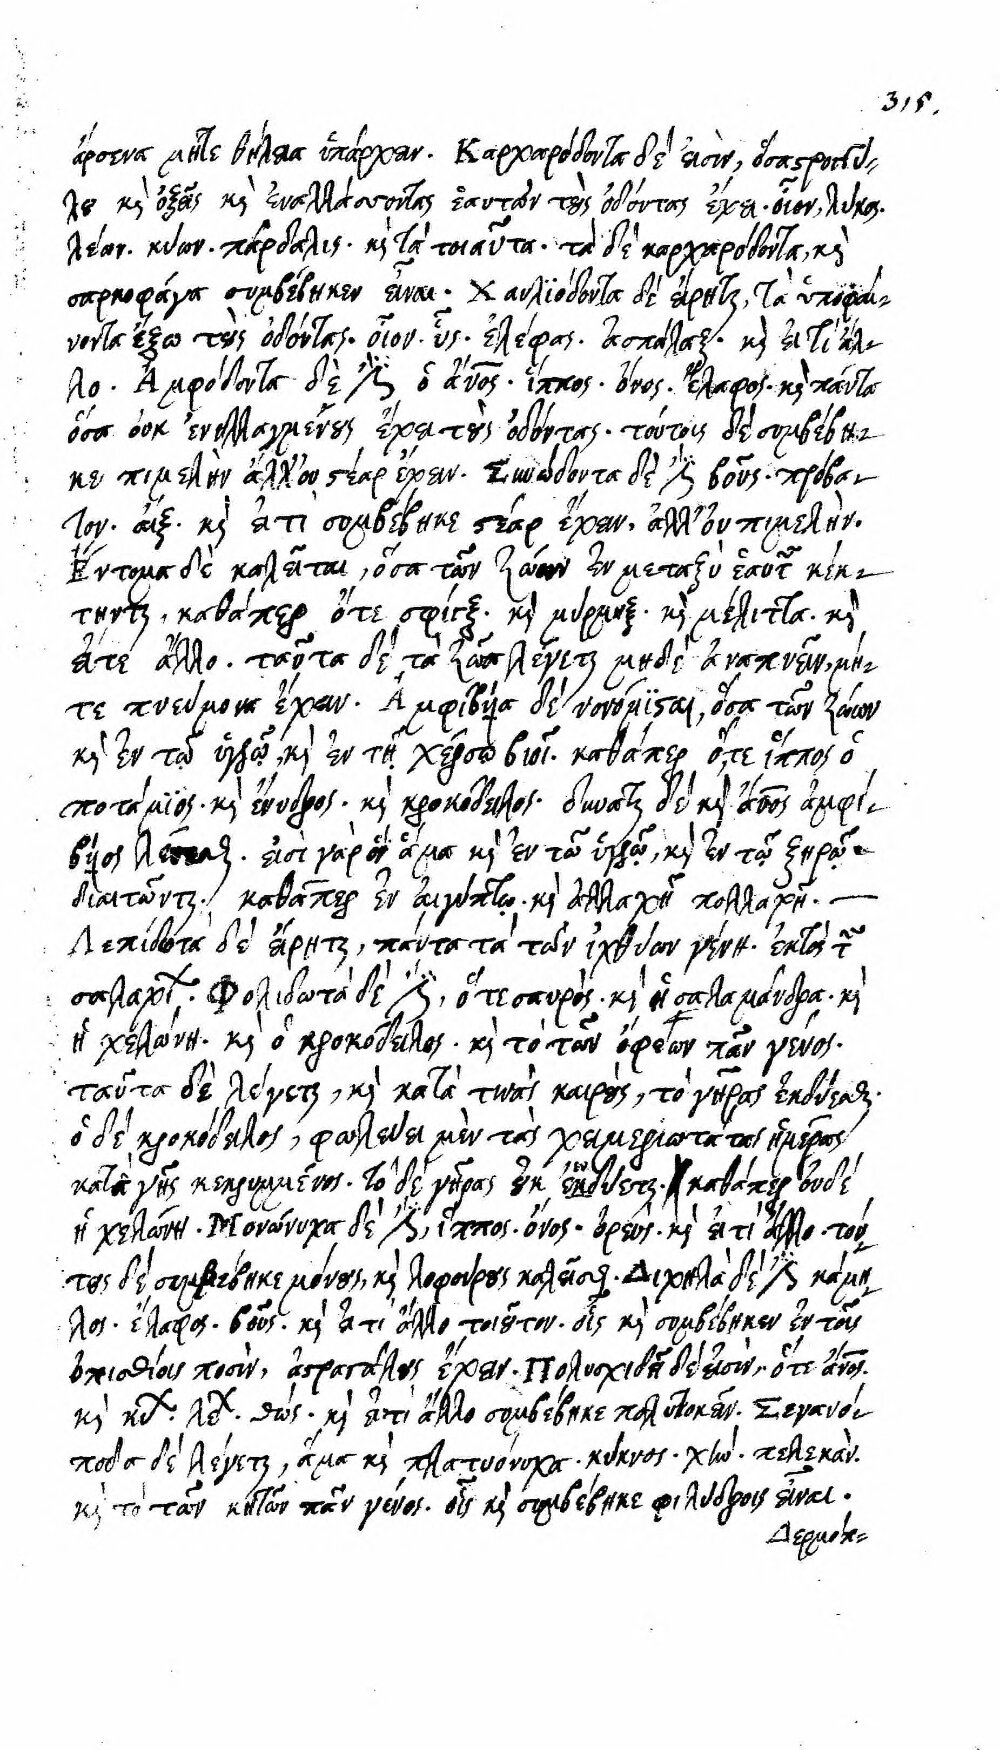 315.
ἄρσενα μήτε θήλεια ὑπάρχειν. Καρχαρόδοντα δέ εἰσιν, ὅσα στρογγύ-
λους καὶ ὀξεῖς καὶ ἐναλλάσσοντας ἑαυτῶν τοὺς ὀδόντας ἔχει. οἷον, λύκος.
λέων. κύων. πάρδαλις. καὶ τὰ τοιαῦτα. τὰ δὲ καρχαρόδοντα, καὶ
σαρκοφάγα συμβέβηκεν εἶναι. Χαυλιόδοντα δὲ εἴρηται, τὰ ὑποφαί-
νοντα ἔξω τοὺς ὀδόντας. οἷον. ὗς. ἐλέφας. ἀσπάλαξ. καὶ εἴ τι ἄλ-
λο. Ἀμφόδοντα δὲ ὁ ἄνος. ἵππος. ὄνος. ἔλαφος. καὶ πάντα
ὅσα οὐκ ἐνηλλαγμένους ἔχει τοὺς ὀδόντας. τούτοις δὲ συμβέβη-
κε πιμελὴν ἀλλ' οὐ στέαρ ἔχειν. Συνώδοντα δὲ βοῦς. πρόβα-
τον. αἴξ. καὶ εἴ τι συμβέβηκε στέαρ ἔχειν. ἀλλ' οὐ πιμελήν.
Ἔντομα δὲ καλεῖται, ὅσα τῶν ζώων ἐν μεταξὺ ἑαυτῶν κέκ-
τηνται, καθάπερ ὅτε σφίγξ. καὶ μύρμηξ. καὶ μέλιττα. καὶ
εἴτε ἄλλο. ταῦτα δὲ τὰ ζῶα λέγεται μηδὲ ἀναπνεῖν, μή-
τε πνεύμονα ἔχειν. Ἀμφίβϊα δὲ νονόμϊσται, ὅσα τῶν ζώων
καὶ ἐν τῷ ὑγρῷ, καὶ ἐν τῇ χέρσῳ βιοῖ. καθάπερ ὅ,τε ἵππος ὁ
ποτάμϊος. καὶ ἔνυδρος. καὶ κροκόδειλος. δύναται δὲ καὶ ἄνος ἀμφί-
βϊος λέγεσθαι. εἰσὶ γὰρ οἳ ἅμα καὶ ἐν τῷ ὑγρῷ, καὶ ἐν τῷ ξηρῷ
διαιτῶνται. καθάπερ ἐν αἰγύπτῳ. καὶ ἀλλαχῆ πολλαχῆ. —
Λεπιδωτὰ δὲ εἴρηται, πάντα τὰ τῶν ἰχθύων γένη. ἐκτὸς τῶν
σαλαχί. Φολιδωτὰ δὲ, ὅτε σαῦρος. καὶ ἡ σαλαμάνδρα. καὶ
ἡ χελώνη. καὶ ὁ κροκόδειλος. καὶ τὸ τῶν ὄφεων πᾶν γένος.
ταῦτα δὲ λέγεται, καὶ κατὰ τινὰς καιροὺς, τὸ γῆρας ἐκδύεσθαι.
ὁ δὲ κροκόδειλος, φωλεύει μὲν τὰς χειμεριωτάτας ἡμέρας
κατὰ γῆς κεκρυμμένος. τὸ δὲ γῆρας οὐκ ἐκδύεται. καθάπερ οὐδὲ
ἡ χελώνη. Μονώνυχα δὲ, ἵππος. ὄνος. ὀρεύς. καὶ εἴ τι ἄλλο. τού-
τους δὲ συμβέβηκε μόνους, καὶ λοφούρους καλεῖσθαι. Διχηλὰ δὲ κάμη-
λος. ἔλαφος. βοῦς. καὶ εἴ τι ἄλλο τοιοῦτον. οἷς καὶ συμβέβηκεν ἐν τοῖς
ὀπισθίοις ποσὶν, ἀστραγάλους ἔχειν. Πολυσχιδῆ δέ εἰσιν, ὅτε ἄνος.
καὶ κύ. λέ. θώς. καὶ εἴ τι ἄλλο συμβέβηκε πολυτοκεῖν. Στεγανό-
ποδα δὲ λέγεται, ἅμα καὶ πλατυόνυχα. κύκνος. χήν. πελεκάν.
καὶ τὸ τῶν κητῶν πᾶν γένος. οἷς καὶ συμβέβηκε φιλύδροις εἶναι.
Δερμόπ-